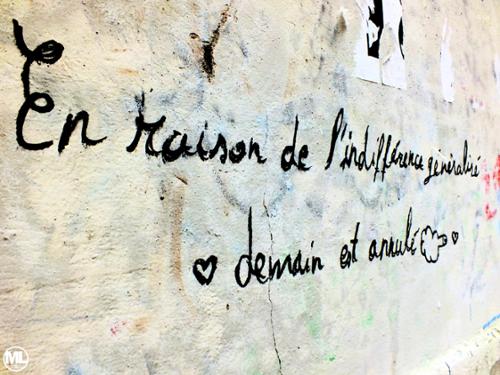 En raison de l'indifférence généralisé
♥ demain est annulé ♥
ML